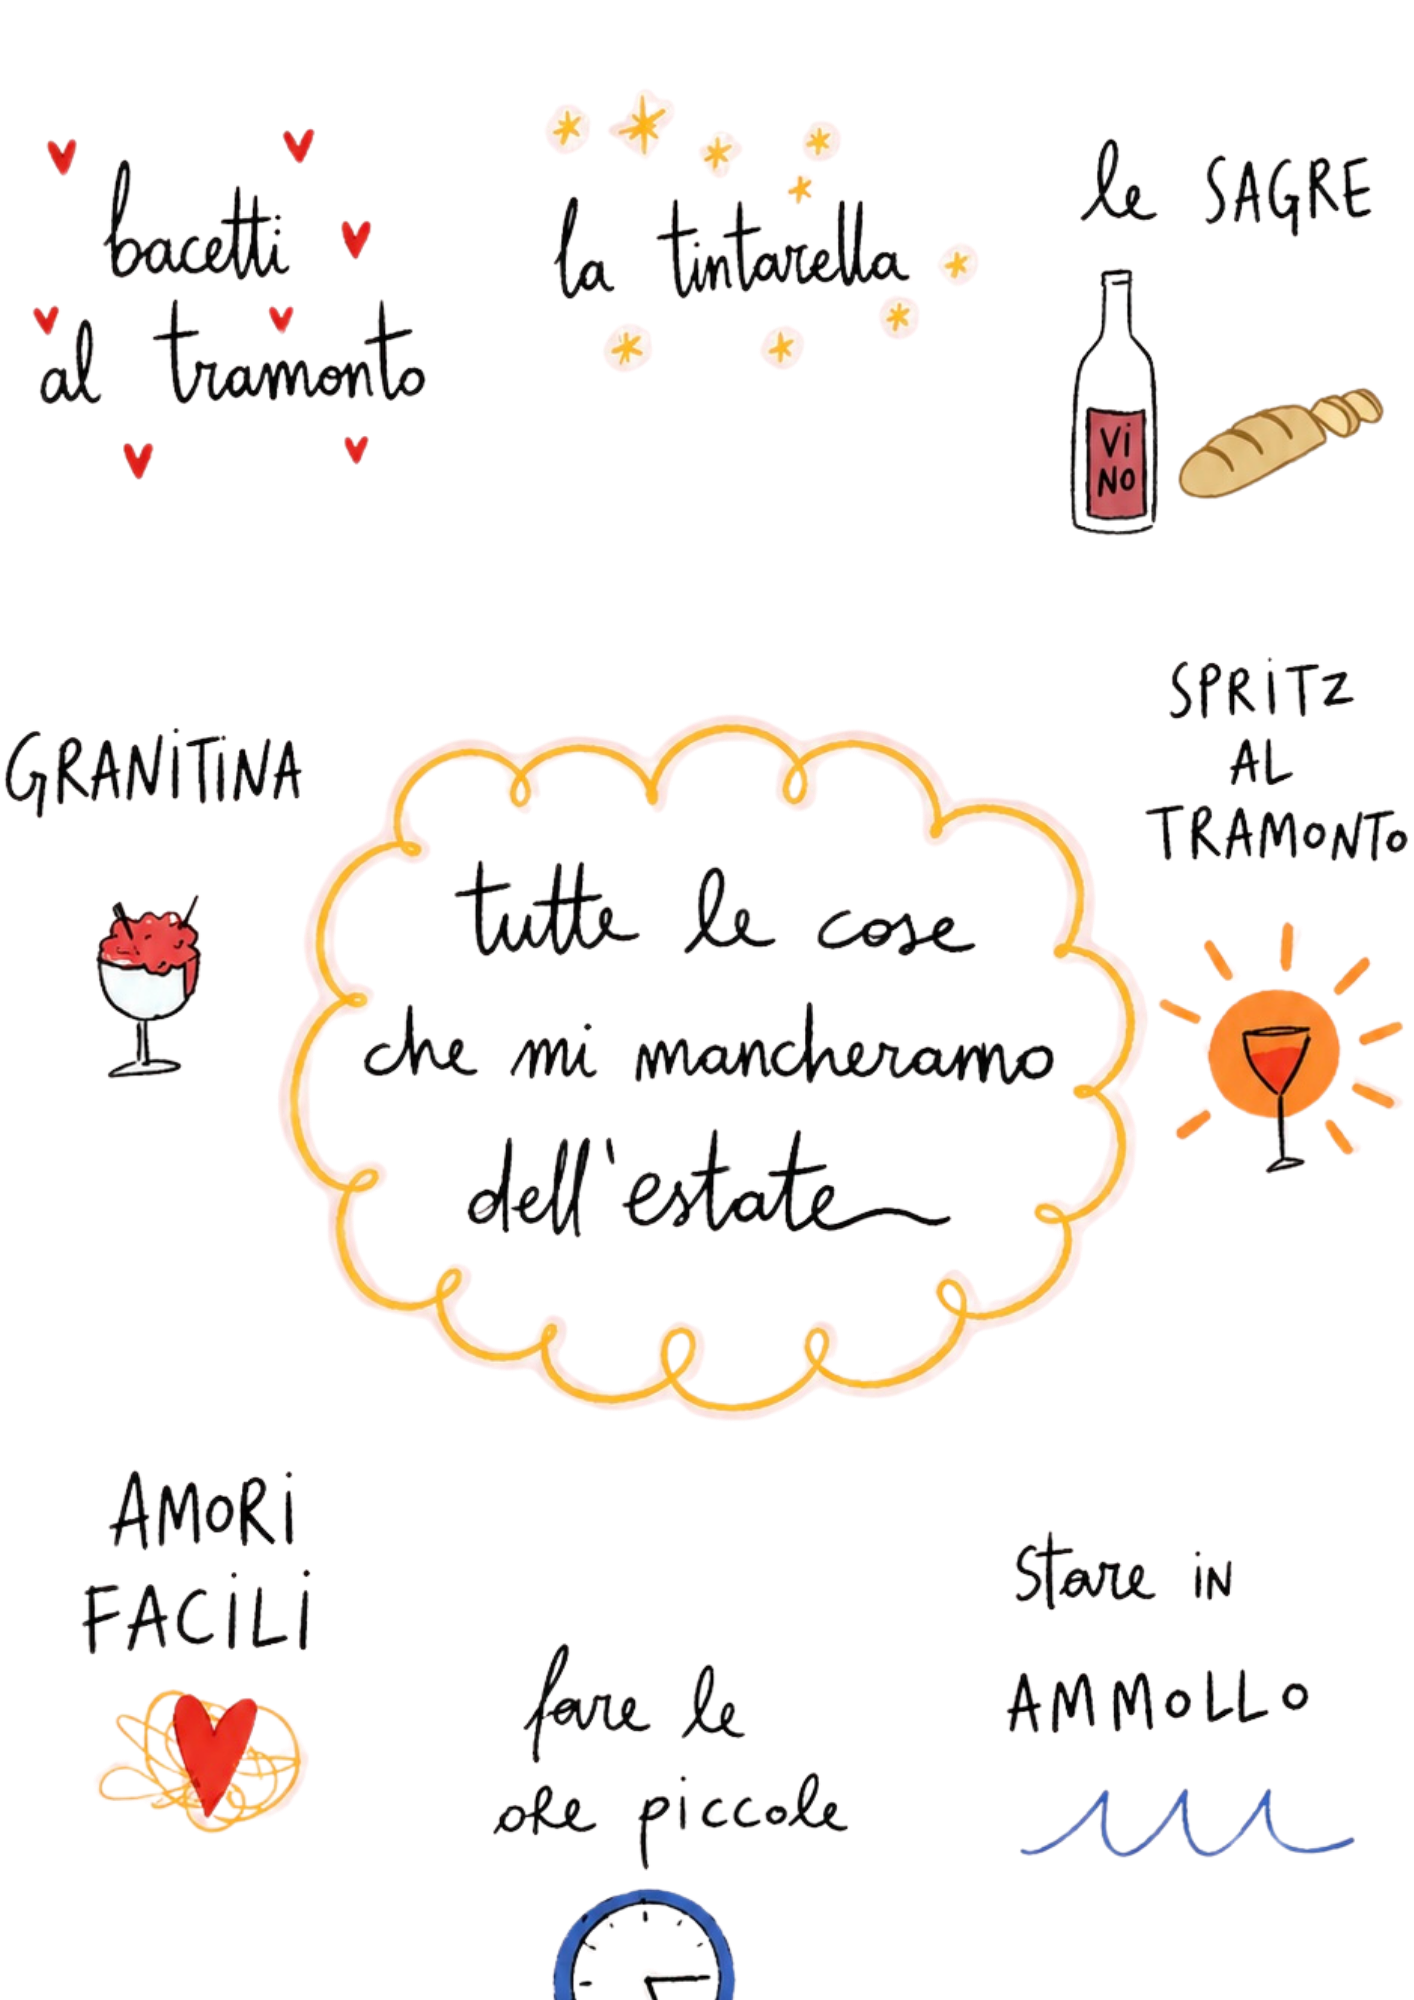 bacetti
al tramonto
la tintarella
le SAGRE
Vi
NO
GRANiTiNA
SPRiTZ
AL
TRAMONTO
tutte le cose
che mi mancheramo
dell'estate
AMORi
FACiLi
fare le
ore piccole
Stare iN
AMMOLLO